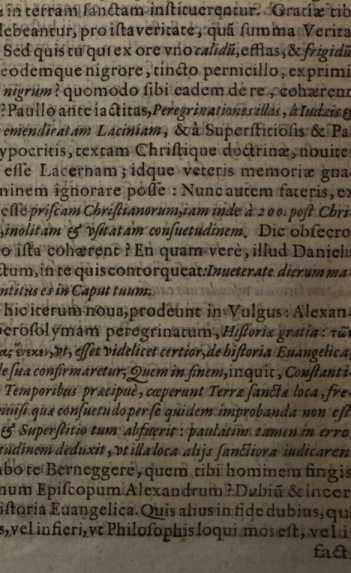 in terram sanctam instituerentur. Gratiæ tib
lebeantur, pro ista veritate, quâ summa Verita
Sed quis tu qui ex ore vno calidũ, efflas, & frigidũ
eodemque nigrore, tincto pernicillo, exprimi
nigrum? quomodo sibi eadem de re, cohærent
? Paullo ante iactitas, Peregrinationes illas, à Iudæis &
emendicatam Laciniam, & à Superstitiosis & Pa
ypocritis, textam Christique doctrinæ, nouite
esse Lacernam; idque veteris memoriæ gna
minem ignorare posse: Nunc autem fateris, ex
esse priscam Christianorum, iam inde à 200. post Chri
, inolitam & vsitatam consuetudinem. Dic obsecro
o ista cohærent? En quam verè, illud Danielis
ctum, in te quis contorqueat: Inueterate dierum ma-
entitus es in Caput tuum.
hic iterum noua, prodeunt in Vulgus: Alexan-
ierosolymam peregrinatum, Historiæ gratia: τῶν
ἕνεκεν, vt, esset videlicet certior, de historia Euangelica,
le sua confirmaretur, Quem in finem, inquit, Constanti-
Temporibus præcipuè, cœperunt Terræ sancta loca, fre-
quæ consuetudo per se quidem improbanda non est
& Superstitio tum abfuerit: paulatim tamen in erro
tudinem deduxit, vt illa loca alijs sanctiora iudicaren
bo te Berneggere, quem tibi hominem fingis
num Episcopum Alexandrum? Dubiũ & incer
istoria Euangelica. Quis alius in fide dubius, qu
s, vel infieri, vt Philosophis loqui mos est, vel i
fact